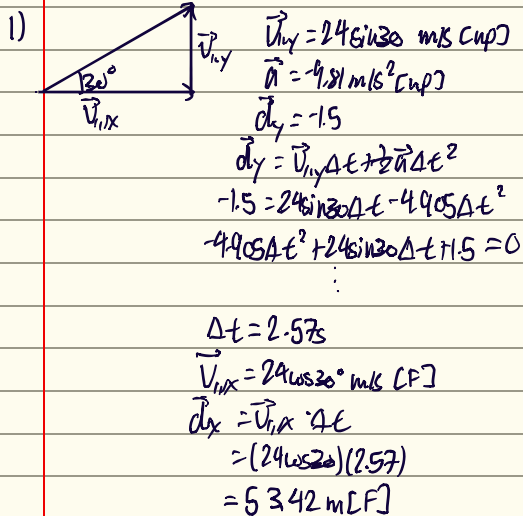 1)
30°
V⃗₁,y
V⃗₁,x
V⃗₁,y = 24sin30 m/s [up]
a⃗ = -9.81 m/s² [up]
d⃗y = -1.5
d⃗y = V⃗₁,yΔt + ½a⃗Δt²
-1.5 = 24sin30Δt - 4.905Δt²
-4.905Δt² + 24sin30Δt + 1.5 = 0
⋮
Δt = 2.57s
V⃗₁,x = 24cos30° m/s [F]
d⃗x = V⃗₁,x · Δt
= (24cos30)(2.57)
= 53.42 m [F]